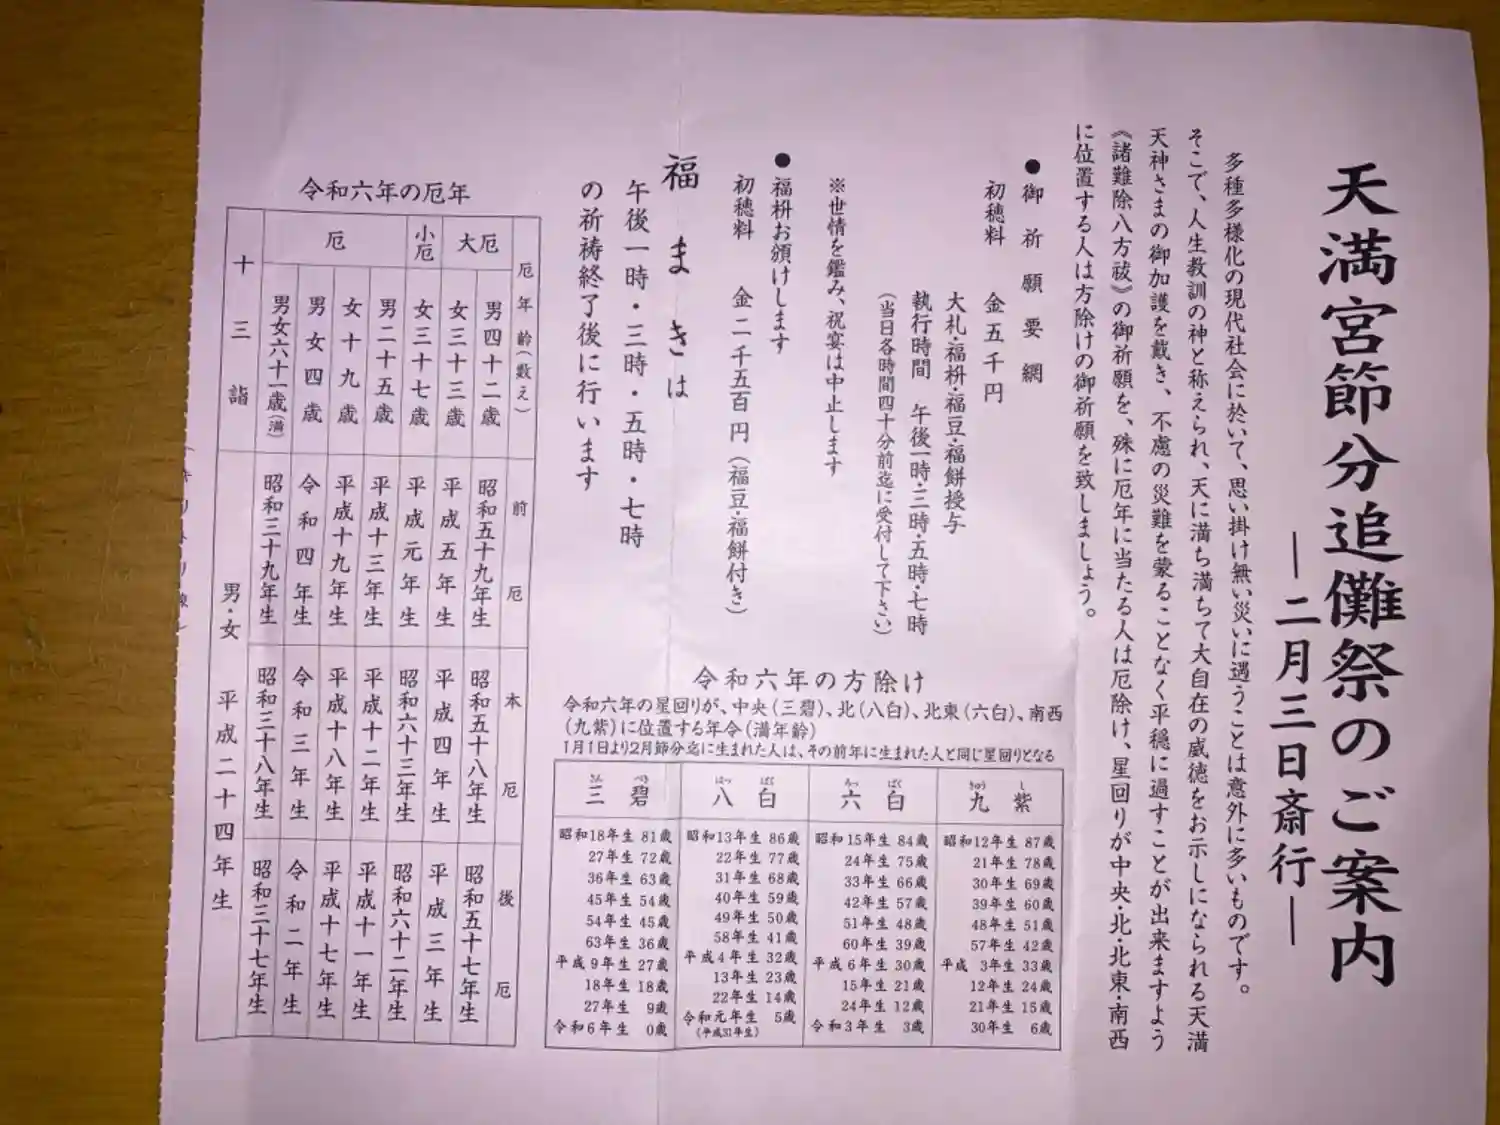 天満宮節分追儺祭のご案内
―二月三日斎行―
多種多様化の現代社会に於いて、思い掛け無い災いに遇うことは意外に多いものです。
そこで、人生教訓の神と称えられ、天に満ち満ちて大自在の威徳をお示しになられる天満
天神さまの御加護を戴き、不慮の災難を蒙ることなく平穏に過すことが出来ますよう
《諸難除八方祓》の御祈願を、殊に厄年に当たる人は厄除け、星回りが中央・北・北東・南西
に位置する人は方除けの御祈願を致しましょう。
●御祈願要網
初穂料 金五千円
大札・福枡・福豆・福餅授与
執行時間 午後一時・三時・五時・七時
(当日各時間四十分前迄に受付して下さい)
※世情を鑑み、祝宴は中止します
●福枡お頒けします
初穂料 金二千五百円(福豆・福餅付き)
福まきは
午後一時・三時・五時・七時
の祈祷終了後に行います
令和六年の方除け
令和六年の星回りが、中央(三碧)、北(八白)、北東(六白)、南西
(九紫)に位置する年令(満年齢)
1月1日より2月節分迄に生まれた人は、その前年に生まれた人と同じ星回りとなる
三碧 八白 六白 九紫
さん ぺき はっ ぱく ろっ ぱく きゅう し
昭和18年生 81歳 昭和13年生 86歳 昭和15年生 84歳 昭和12年生 87歳
27年生 72歳 22年生 77歳 24年生 75歳 21年生 78歳
36年生 63歳 31年生 68歳 33年生 66歳 30年生 69歳
45年生 54歳 40年生 59歳 42年生 57歳 39年生 60歳
54年生 45歳 49年生 50歳 51年生 48歳 48年生 51歳
63年生 36歳 58年生 41歳 60年生 39歳 57年生 42歳
平成9年生 27歳 平成4年生 32歳 平成6年生 30歳 平成3年生 33歳
18年生 18歳 13年生 23歳 15年生 21歳 12年生 24歳
27年生 9歳 22年生 14歳 24年生 12歳 21年生 15歳
令和6年生 0歳 令和元年生 5歳 令和3年生 3歳 30年生 6歳
(平成31年生)
令和六年の厄年
厄年齢(数え) 前厄 本厄 後厄
大厄 男四十二歳 昭和五十九年生 昭和五十八年生 昭和五十七年生
女三十三歳 平成五年生 平成四年生 平成三年生
小厄 女三十七歳 平成元年生 昭和六十三年生 昭和六十二年生
厄 男二十五歳 平成十三年生 平成十二年生 平成十一年生
女十九歳 平成十九年生 平成十八年生 平成十七年生
男女四歳 令和四年生 令和三年生 令和二年生
男女六十一歳(満) 昭和三十九年生 昭和三十八年生 昭和三十七年生
十三詣 男・女 平成二十四年生